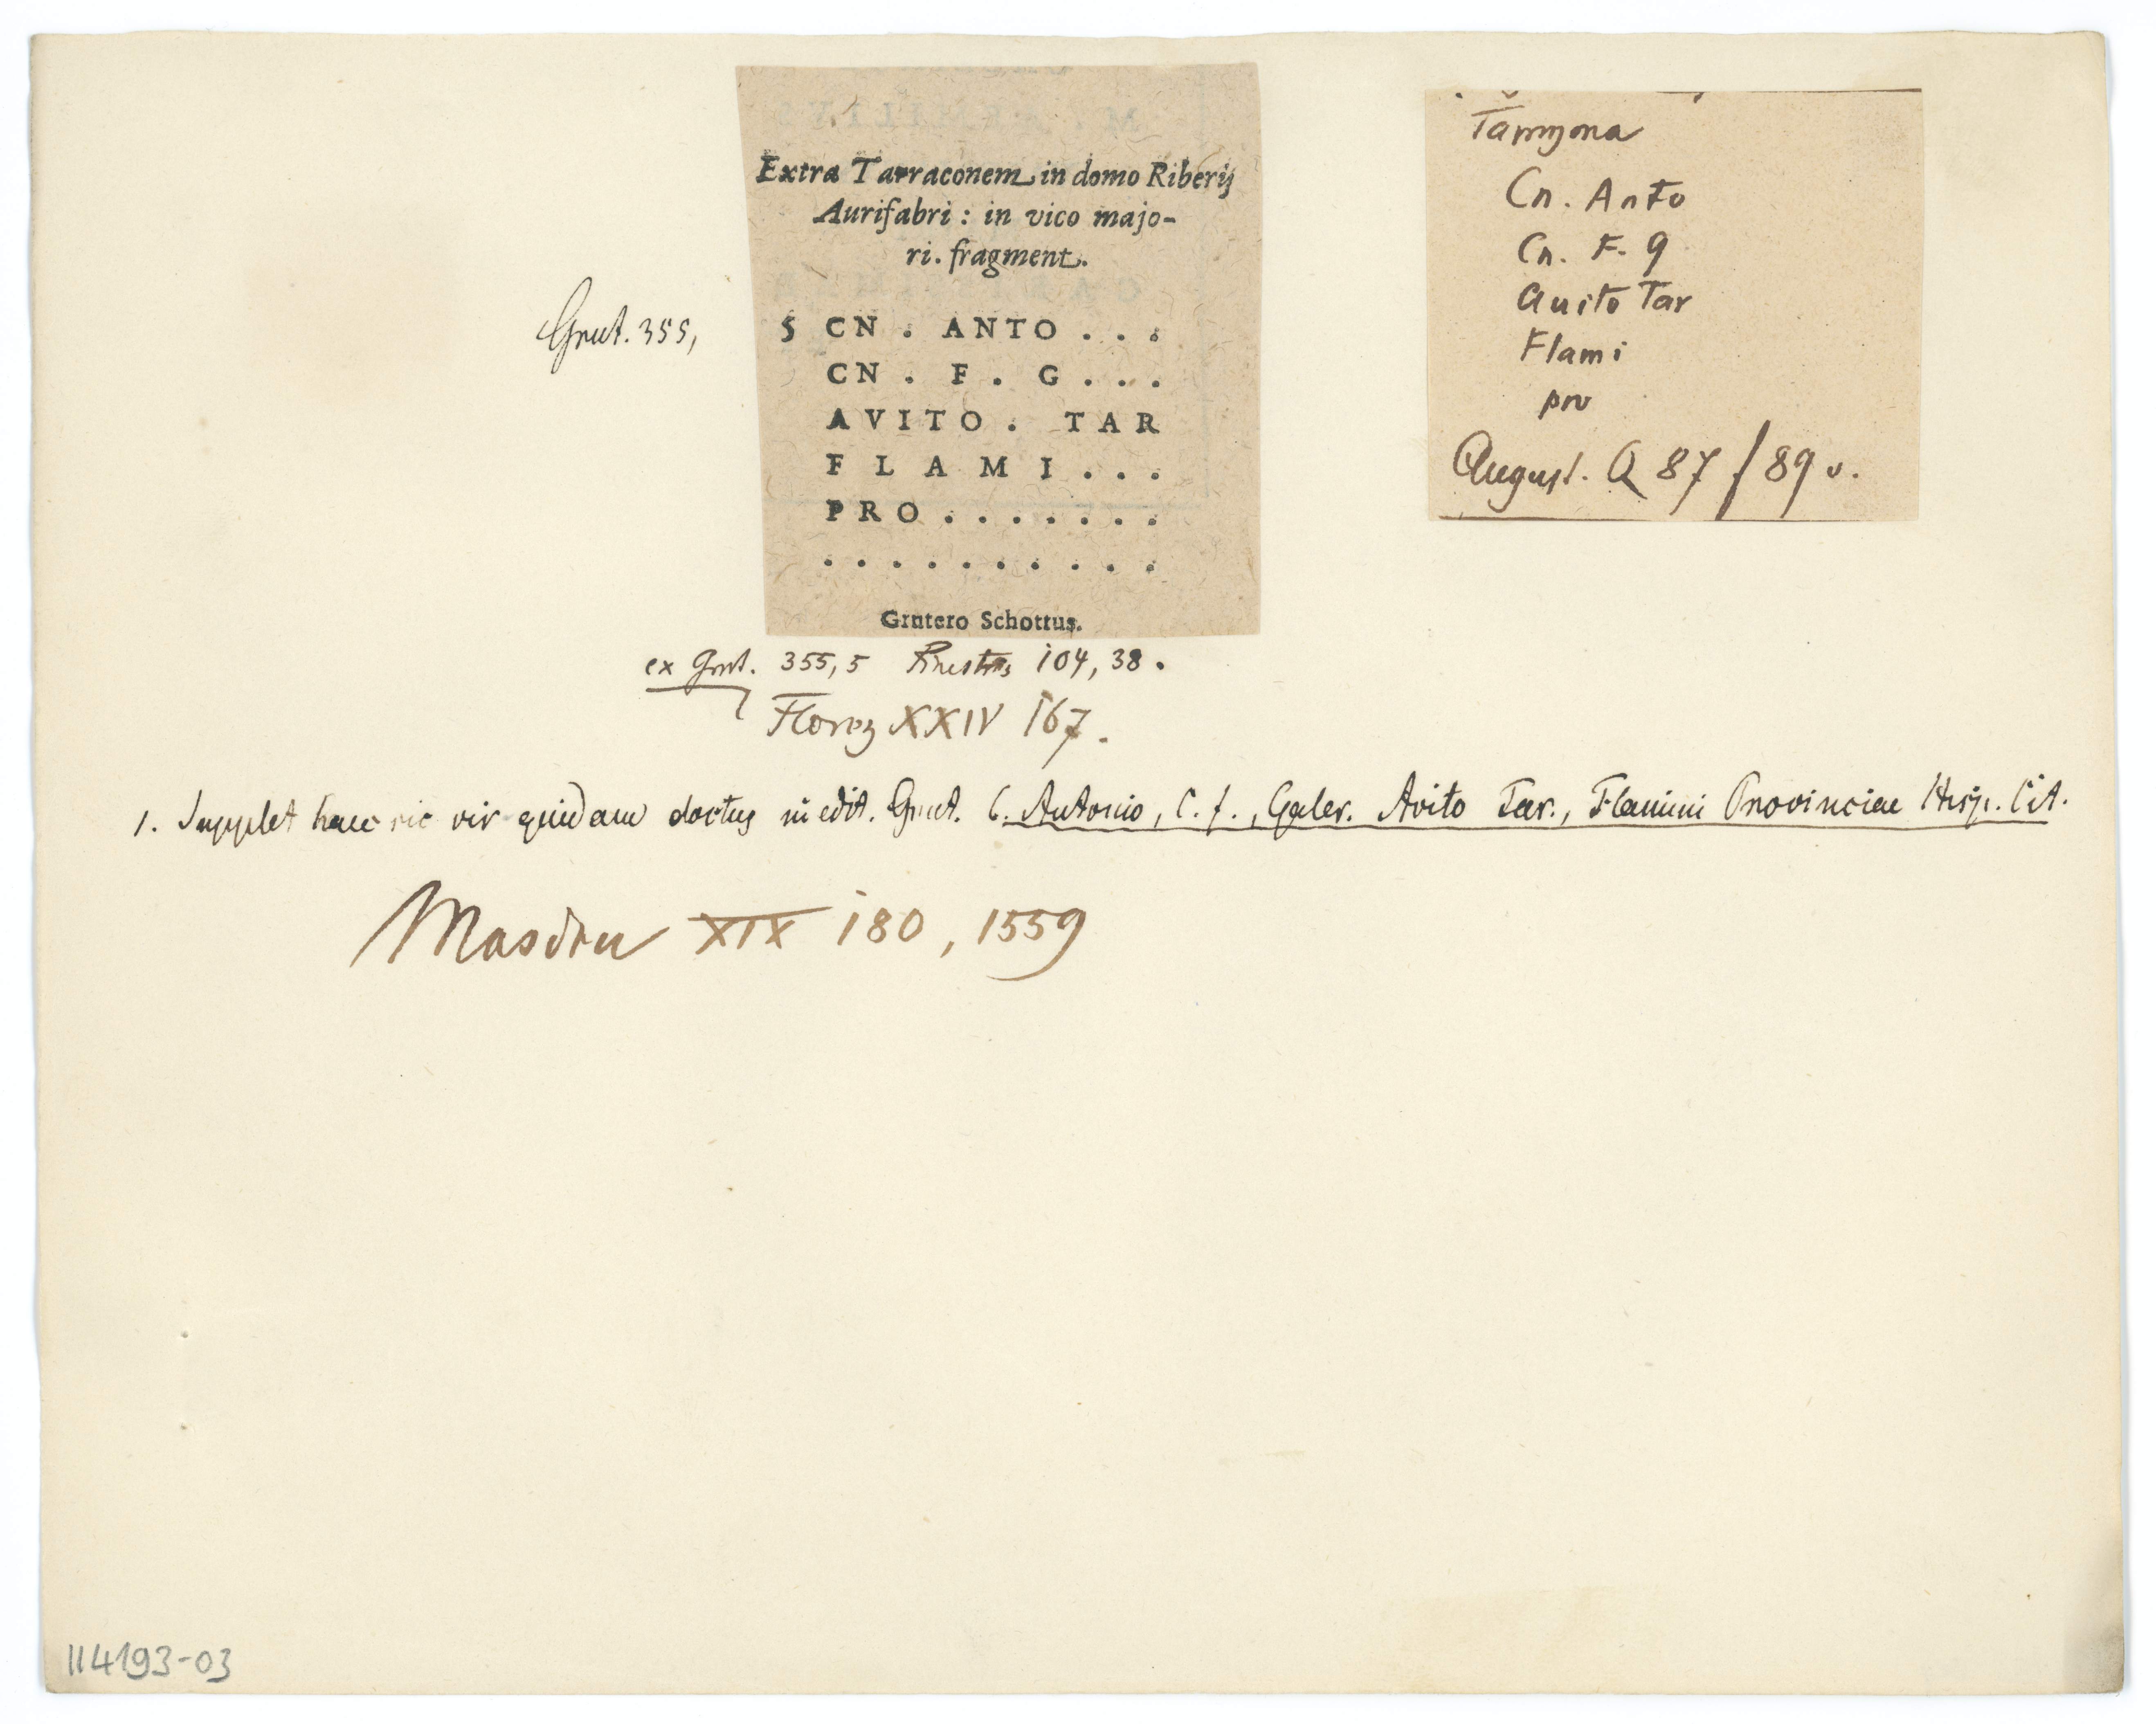 Extra Tarraconem in domo Riberij
Aurifabri : in vico majo-
ri. fragment.
Grut. 355,
5 CN . ANTO . . .
CN . F . G . . .
AVITO . TAR
FLAMI . . .
PRO . . . . . . .
. . . . . . . . . .
Grutero Schottus.
ex Grut. 355,5 104,38.
Florez XXIV 167.
Cn. Anto
Cn. F. g
Auito Tar
Flami
pro
August. Q 87 f 89 v.
1. Supplet haec sic vir quidam doctus in edit. Grut. C. Antonio, C. f., Galer. Avito Tar., Flamini Provinciae Hisp. Cit.
Masdeu XIX 180, 1559
114193-03